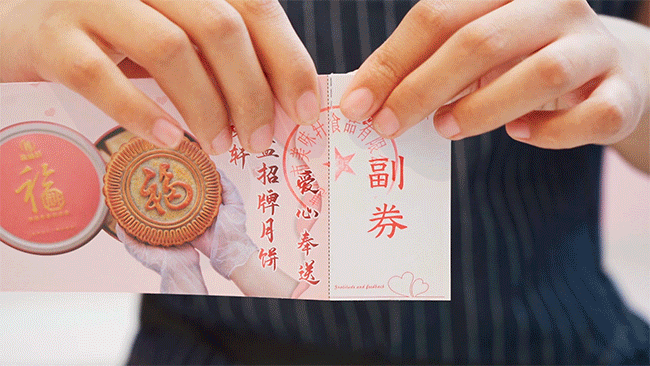 福
福
轩
益招牌月饼
爱心奉送
美味轩食品有限
副券
Gratitude and feedback